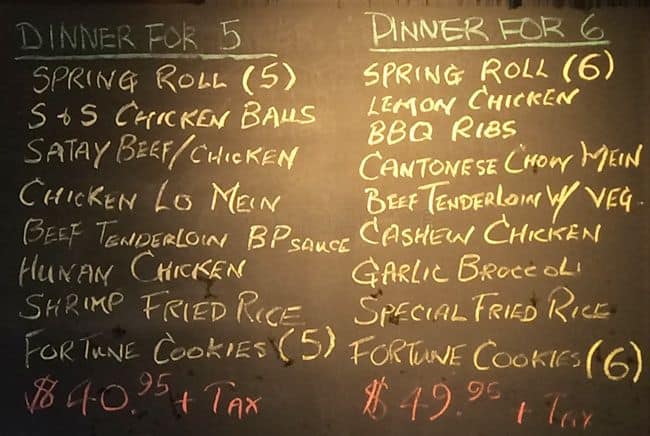 DINNER FOR 5
SPRING ROLL (5)
S & S CHICKEN BALLS
SATAY BEEF/CHICKEN
CHICKEN LO MEIN
BEEF TENDERLOIN BP SAUCE
HUNAN CHICKEN
SHRIMP FRIED RICE
FORTUNE COOKIES (5)
$40.95 + TAX
DINNER FOR 6
SPRING ROLL (6)
LEMON CHICKEN
BBQ RIBS
CANTONESE CHOW MEIN
BEEF TENDERLOIN W/ VEG.
CASHEW CHICKEN
GARLIC BROCCOLI
SPECIAL FRIED RICE
FORTUNE COOKIES (6)
$49.95 + TAX